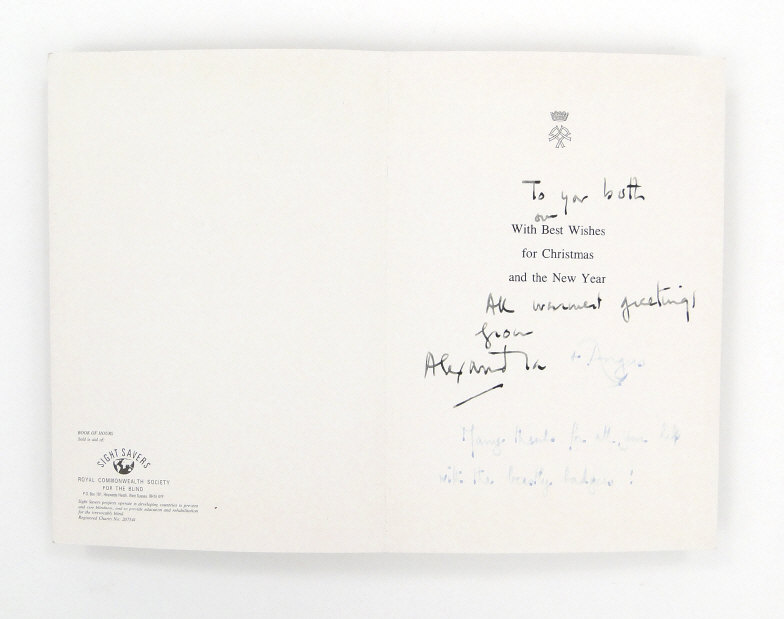 BOOK OF HOURS
Sold in aid of:
SIGHT SAVERS
ROYAL COMMONWEALTH SOCIETY
FOR THE BLIND
P.O. Box 191, Haywards Heath, West Sussex, RH16
Sight Savers projects operate in developing countries to prevent
and cure blindness, and to provide education and rehabilitation
for the irreversibly blind.
Registered Charity No. 207544
To you both
our
With Best Wishes
for Christmas
and the New Year
All warmest greetings
from
Alexandra & Angus
Many thanks for all your help
with the beastly badgers !